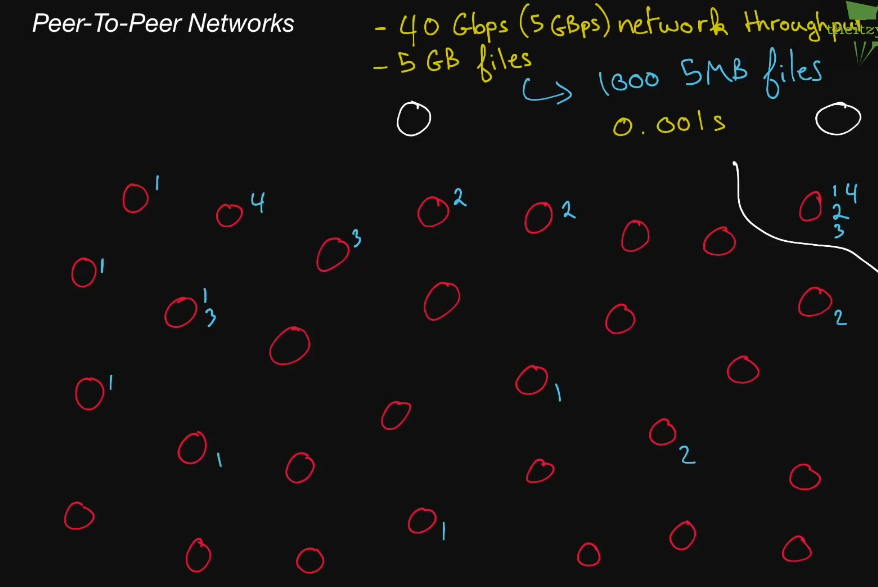 Peer-To-Peer Networks
- 40 Gbps (5 GBps) network throughput
- 5 GB files
1000 5MB files
0.001s
1
4
3
2
2
1 4
2
3
1
1
3
2
1
1
1
2
1